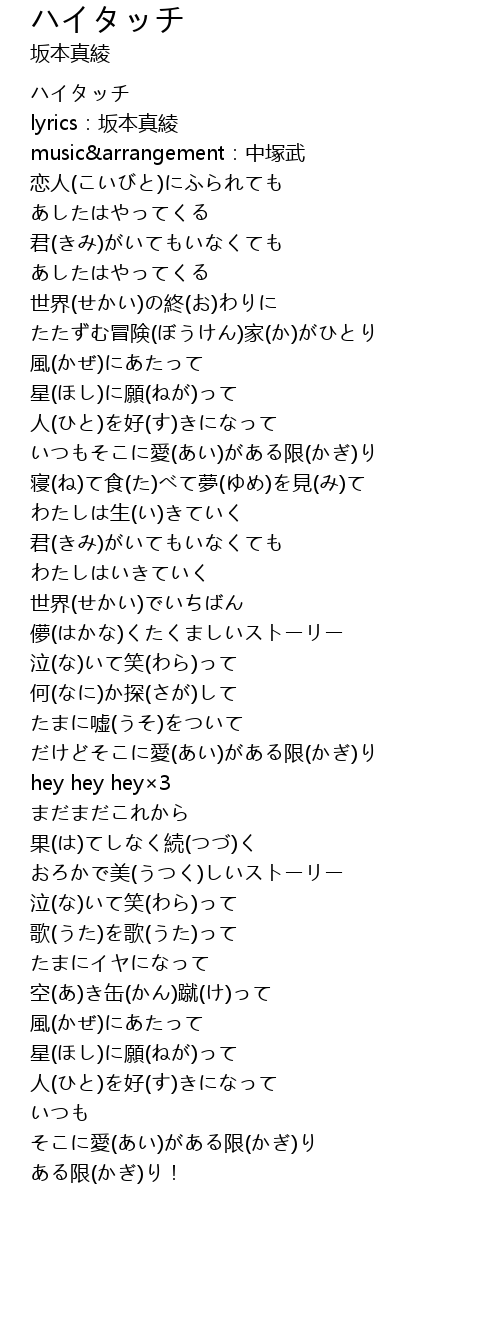 ハイタッチ
坂本真綾
ハイタッチ
lyrics：坂本真綾
music&arrangement：中塚武
恋人(こいびと)にふられても
あしたはやってくる
君(きみ)がいてもいなくても
あしたはやってくる
世界(せかい)の終(お)わりに
たたずむ冒険(ぼうけん)家(か)がひとり
風(かぜ)にあたって
星(ほし)に願(ねが)って
人(ひと)を好(す)きになって
いつもそこに愛(あい)がある限(かぎ)り
寝(ね)て食(た)べて夢(ゆめ)を見(み)て
わたしは生(い)きていく
君(きみ)がいてもいなくても
わたしはいきていく
世界(せかい)でいちばん
儚(はかな)くたくましいストーリー
泣(な)いて笑(わら)って
何(なに)か探(さが)して
たまに嘘(うそ)をついて
だけどそこに愛(あい)がある限(かぎ)り
hey hey hey×3
まだまだこれから
果(は)てしなく続(つづ)く
おろかで美(うつく)しいストーリー
泣(な)いて笑(わら)って
歌(うた)を歌(うた)って
たまにイヤになって
空(あ)き缶(かん)蹴(け)って
風(かぜ)にあたって
星(ほし)に願(ねが)って
人(ひと)を好(す)きになって
いつも
そこに愛(あい)がある限(かぎ)り
ある限(かぎ)り！